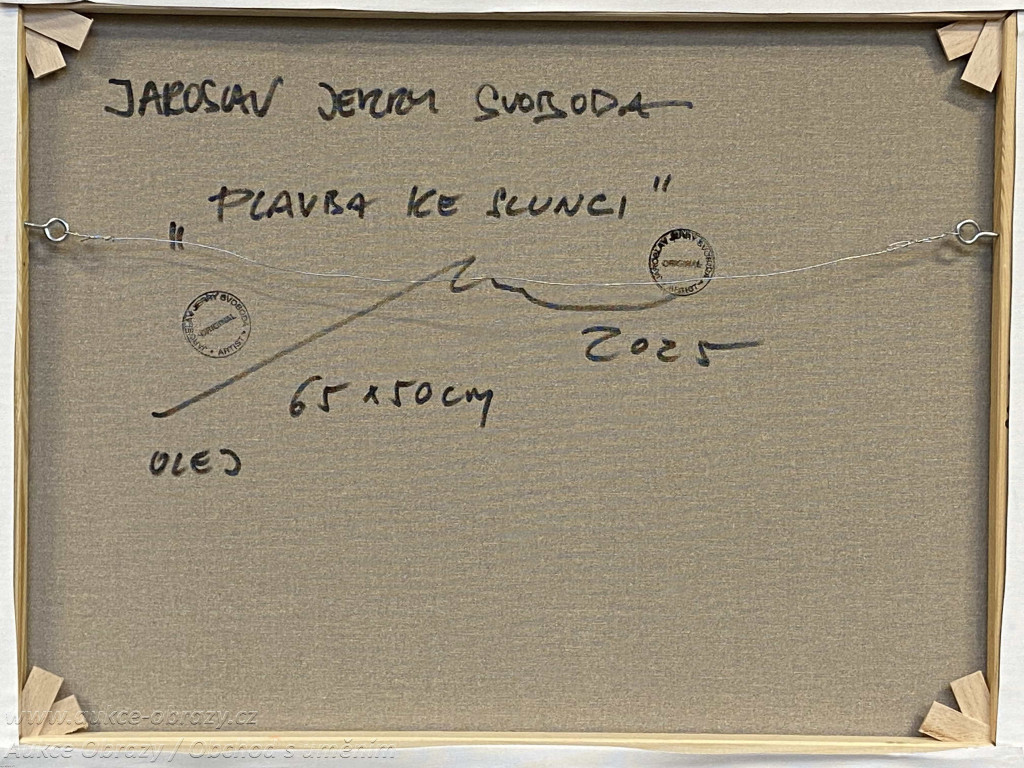 JAROSLAV JERRY SVOBODA
"PLAVBA KE SLUNCI"
JAROSLAV JERRY SVOBODA
ORIGINAL
• ARTIST •
JAROSLAV JERRY SVOBODA
ORIGINAL
• ARTIST •
2025
65 x 50 cm
OLEJ
www.aukce-obrazy.cz
Aukce Obrazy / Obchod s uměním